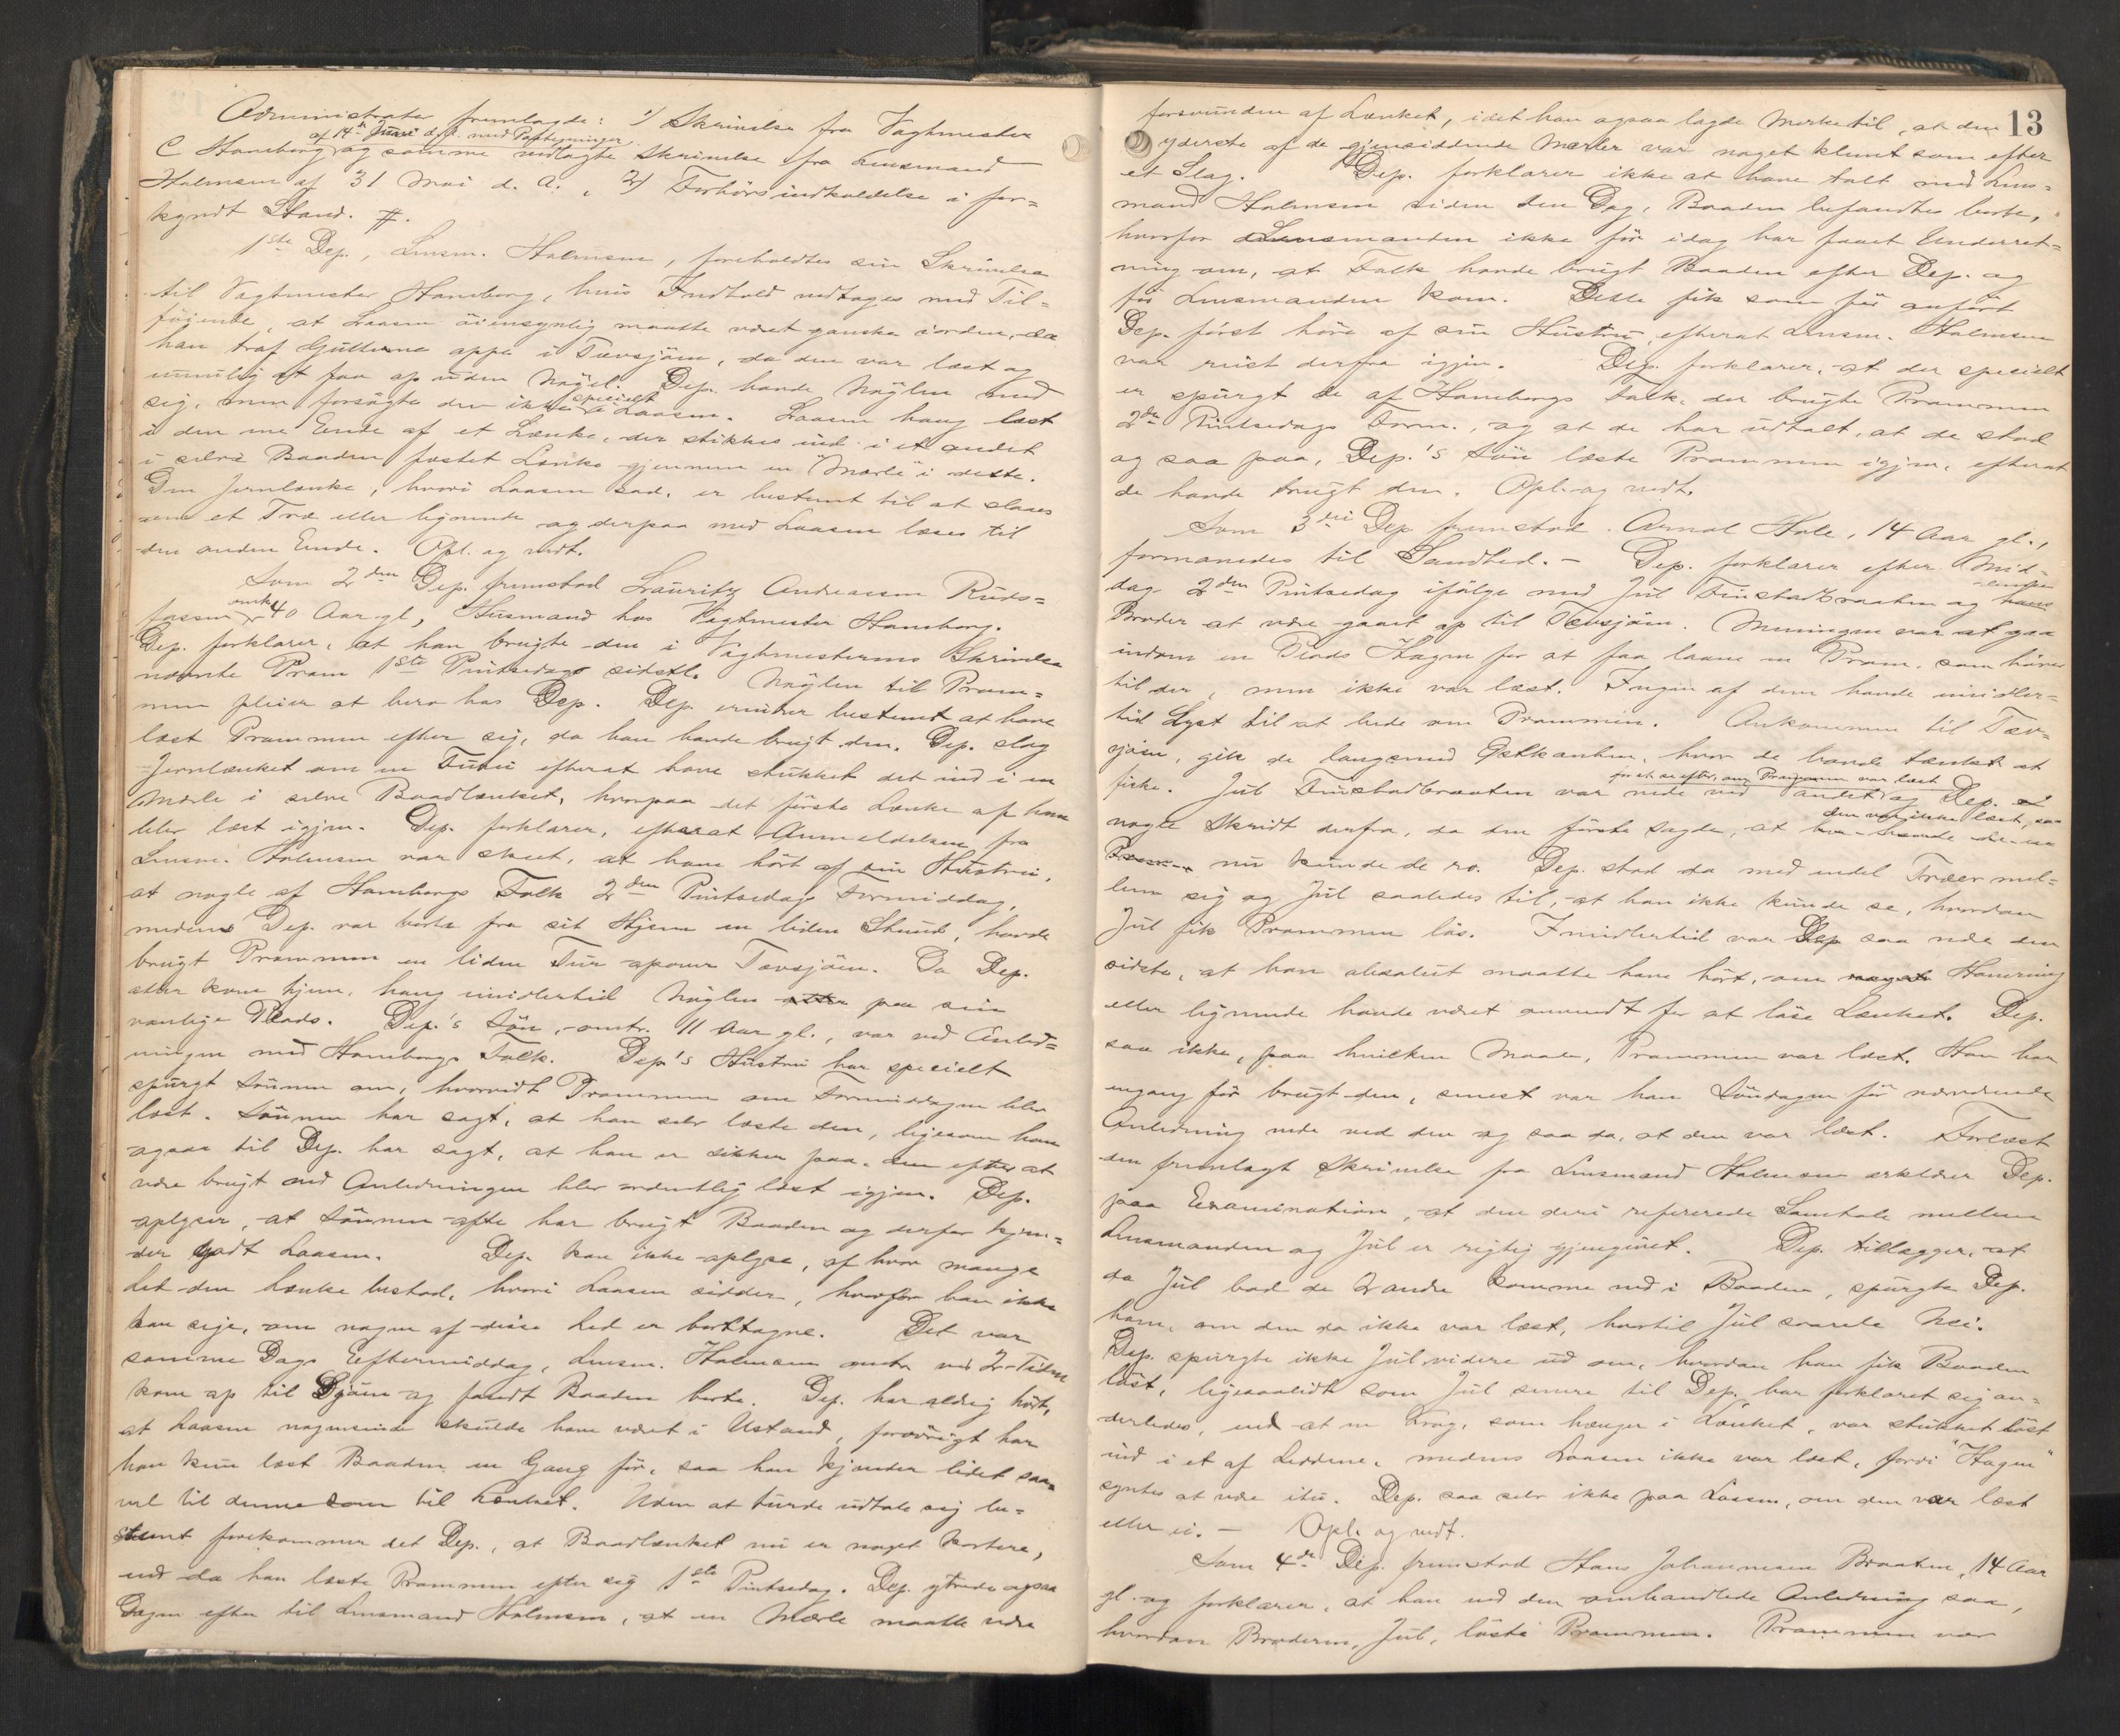 Administrator fremlagde: 1/ Skrivelse fra Vagtmester
af 14de Juni d. A. med Paategninger
C Hamborg og samme vedlagte Skrivelse fra Lensmand
Holmsen af 31 Mai d. A., 2/ Forhörsindkaldelse i for=
kyndt Stand. #.
1ste Dep., Lensm. Holmsen, foreholdtes sin Skrivelse
til Vagtmester Hamborg, hvis Indhold vedtages med Til=
föiende, at Laasen öiensynlig maatte været ganske iorden, da
han traf Gutterne oppe i Tævsjöen, da den var læst og
umulig at faa op uden Nögel. Dep. havde Nöglen med
sig, men forsögte den ikke specielt i Laasen. Laasen hang læst
i den ene Ende af et Lænke, der stikkes ind i et andet
i selve Baaden fæstet Lænke gjennem en "Mærle" i dette.
Den Jernlænke, hvori Laasen sad, er bestemt til at slaaes
om et Træ eller lignende og derpaa med Laasen læses til
den anden Ende. Opl. og vedt.
Som 2den Dep. fremstod Lauritz Andreassen Ruds=
fossen omk. 40 Aar gl., Husmand hos Vagtmester Hamborg.
Dep. forklarer, at han brugte den i Vagtmesterens Skrivelse
nævnte Pram 1ste Pintsedags sidstl. Nöglen til Pram=
men pleier at bero hos Dep. Dep. erindrer bestemt at have
læst Prammen efter sig, da han havde brugt den. Dep. slog
Jernlænket om en Furu efterat have stukket det ind i en
Mærle i selve Baadlænket, hvorpaa det förste Lænke af ham
blev læst igjen. Dep. forklarer, efterat Anmeldelsen fra
Lensm. Holmsen var skeet, at have hört af sin Hustru,
at nogle af Hamborgs Folk 2den Pintsedags Formiddag,
medens Dep. var borte fra sit Hjem en liden Stund, havde
brugt Prammen en liden Tur opover Tævsjöen. Da Dep.
atter kom hjem, hang imidlertid Nöglen paa sin
vanlige Plads. Dep.'s Sön, omtr. 11 Aar gl., var ved Anled=
ningen med Hamborgs Folk. Dep's Hustru har specielt
spurgt Sönnen om, hvorvidt Prammen om Formiddagen blev
læst. Sönnen har sagt, at han selv læste den, ligesom han
ogsaa til Dep. har sagt, at han er sikker paa, den efter at
være brugt ved Anledningen blev ordentlig læst igjen. Dep.
oplyser, at Sönnen ofte har brugt Baaden og derfor kjen=
der godt Laasen. Dep. kan ikke oplyse, af hvor mange
Led den Lænke bestod, hvori Laasen sidder, hvorfor han ikke
kan sige, om nogen af disse Led er borttagne. Det var
samme Dags Eftermiddag, Lensm. Holmsen omtr. ved 2-Tiden
kom op til Sjöen og fandt Baaden borte. Dep. har aldrig hört,
at Laasen nogensinde skulde have været i Ustand, forövrigt har
han kun læst Baaden en Gang för, saa han kjender lidet saa=
vel til denne som til Lænket. Uden at turde udtale sig be=
stemt forekommer det Dep., at Baadlænket nu er noget kortere,
end da han læste Prammen efter sig 1ste Pintsedag. Dep. ytrede ogsaa
Dagen efter til Lensmand Holmsen, at en Mærle maatte være
13
forsvunden af Lænket, idet han ogsaa lagde Mærke til, at den
yderste af de gjensiddende Mærler var noget klemt som efter
et Slag. Dep. forklarer ikke at have talt med Lens=
mand Holmsen siden den Dag, Baaden befandtes borte,
hvorfor Lensmanden ikke för idag har faaet Underret=
ning om, at Folk havde brugt Baaden efter Dep. og
för Lensmanden kom. Dette fik som för anfört
Dep. först höre af sin Hustru, efterat Lensm. Holmsen
var reist derfra igjen. Dep. forklarer, at der specielt
er spurgt de af Hamborgs Folk, der brugte Prammen
2den Pintsedags Form., og at de har udtalt, at de stod
og saa paa, Dep.'s Sön læste Prammen igjen, efterat
de havde brugt den. Opl. og vedt.
Som 3die Dep fremstod Arnol Hole, 14 Aar gl.,
formanedes til Sandhed. – Dep. forklarer efter Mid=
dag 2den Pintsedag ifölge med Jul Finstadbraaten og
Broder at være gaaet op til Tævsjöen. Meningen var at gaa
indom en Plads Hagen for at faa laane en Pram, som hörer
til der, men ikke var læst. Ingen af dem havde imidler=
tid Lyst til at bede om Prammen. Ankommen til Tæv=
sjöen, gik de langsmed Østkanten, hvor de havde tænkt at
for at se efter, om Prammen var læst
fiske. Jul Finstadbraaten var nede ved Vandet og Dep.
den var ikke læst, saa
nogle Skridt derfra, da den förste sagde, at
nu kunde de ro. Dep. stod da med endel Træer mel=
lem sig og Jul saaledes til, at han ikke kunde se, hvordan
Jul fik Prammen lös. Imidlertid var Dep saa nær den
sidste, at han absolut maatte have hört, om Hamring
eller lignende havde været anvendt for at löse Lænket. Dep.
saa ikke, paa hvilken Maade, Prammen var læst. Han har
engang för brugt den, senest var han Söndagen för nærværende
Anledning nede ved den og saa da, at den var læst. Forelæst
den fremlagt Skrivelse fra Lensmand Holmsen erklærer Dep.
paa Examination, at den deri refererede Samtale mellem
Lensmanden og Jul er rigtig gjengivet. Dep. tillægger, at
da Jul bad de 2 andre komme ned i Baaden, spurgte Dep.
ham, om den da ikke var læst, hvortil Jul svarede Nei.
Dep. spurgte ikke Jul videre ud om, hvordan han fik Baaden
löst, ligesaalidt som Jul senere til Dep. har forklaret sig an=
derledes, end at en Krog, som hænger i Lænket, var stukket löst
ind i et af Leddene, medens Laasen ikke var læst, fordi "Hagen"
syntes at være itu. Dep. saa selv ikke paa Laasen, om den var læst
eller ei. – Opl. og vedt.
Som 4de Dep. fremstod Hans Johannesen Braaten, 14 Aar
gl. og forklarer, at han ved den omhandlede Anledning saa,
hvordan Broderen, Jul, löste Prammen. Prammen var